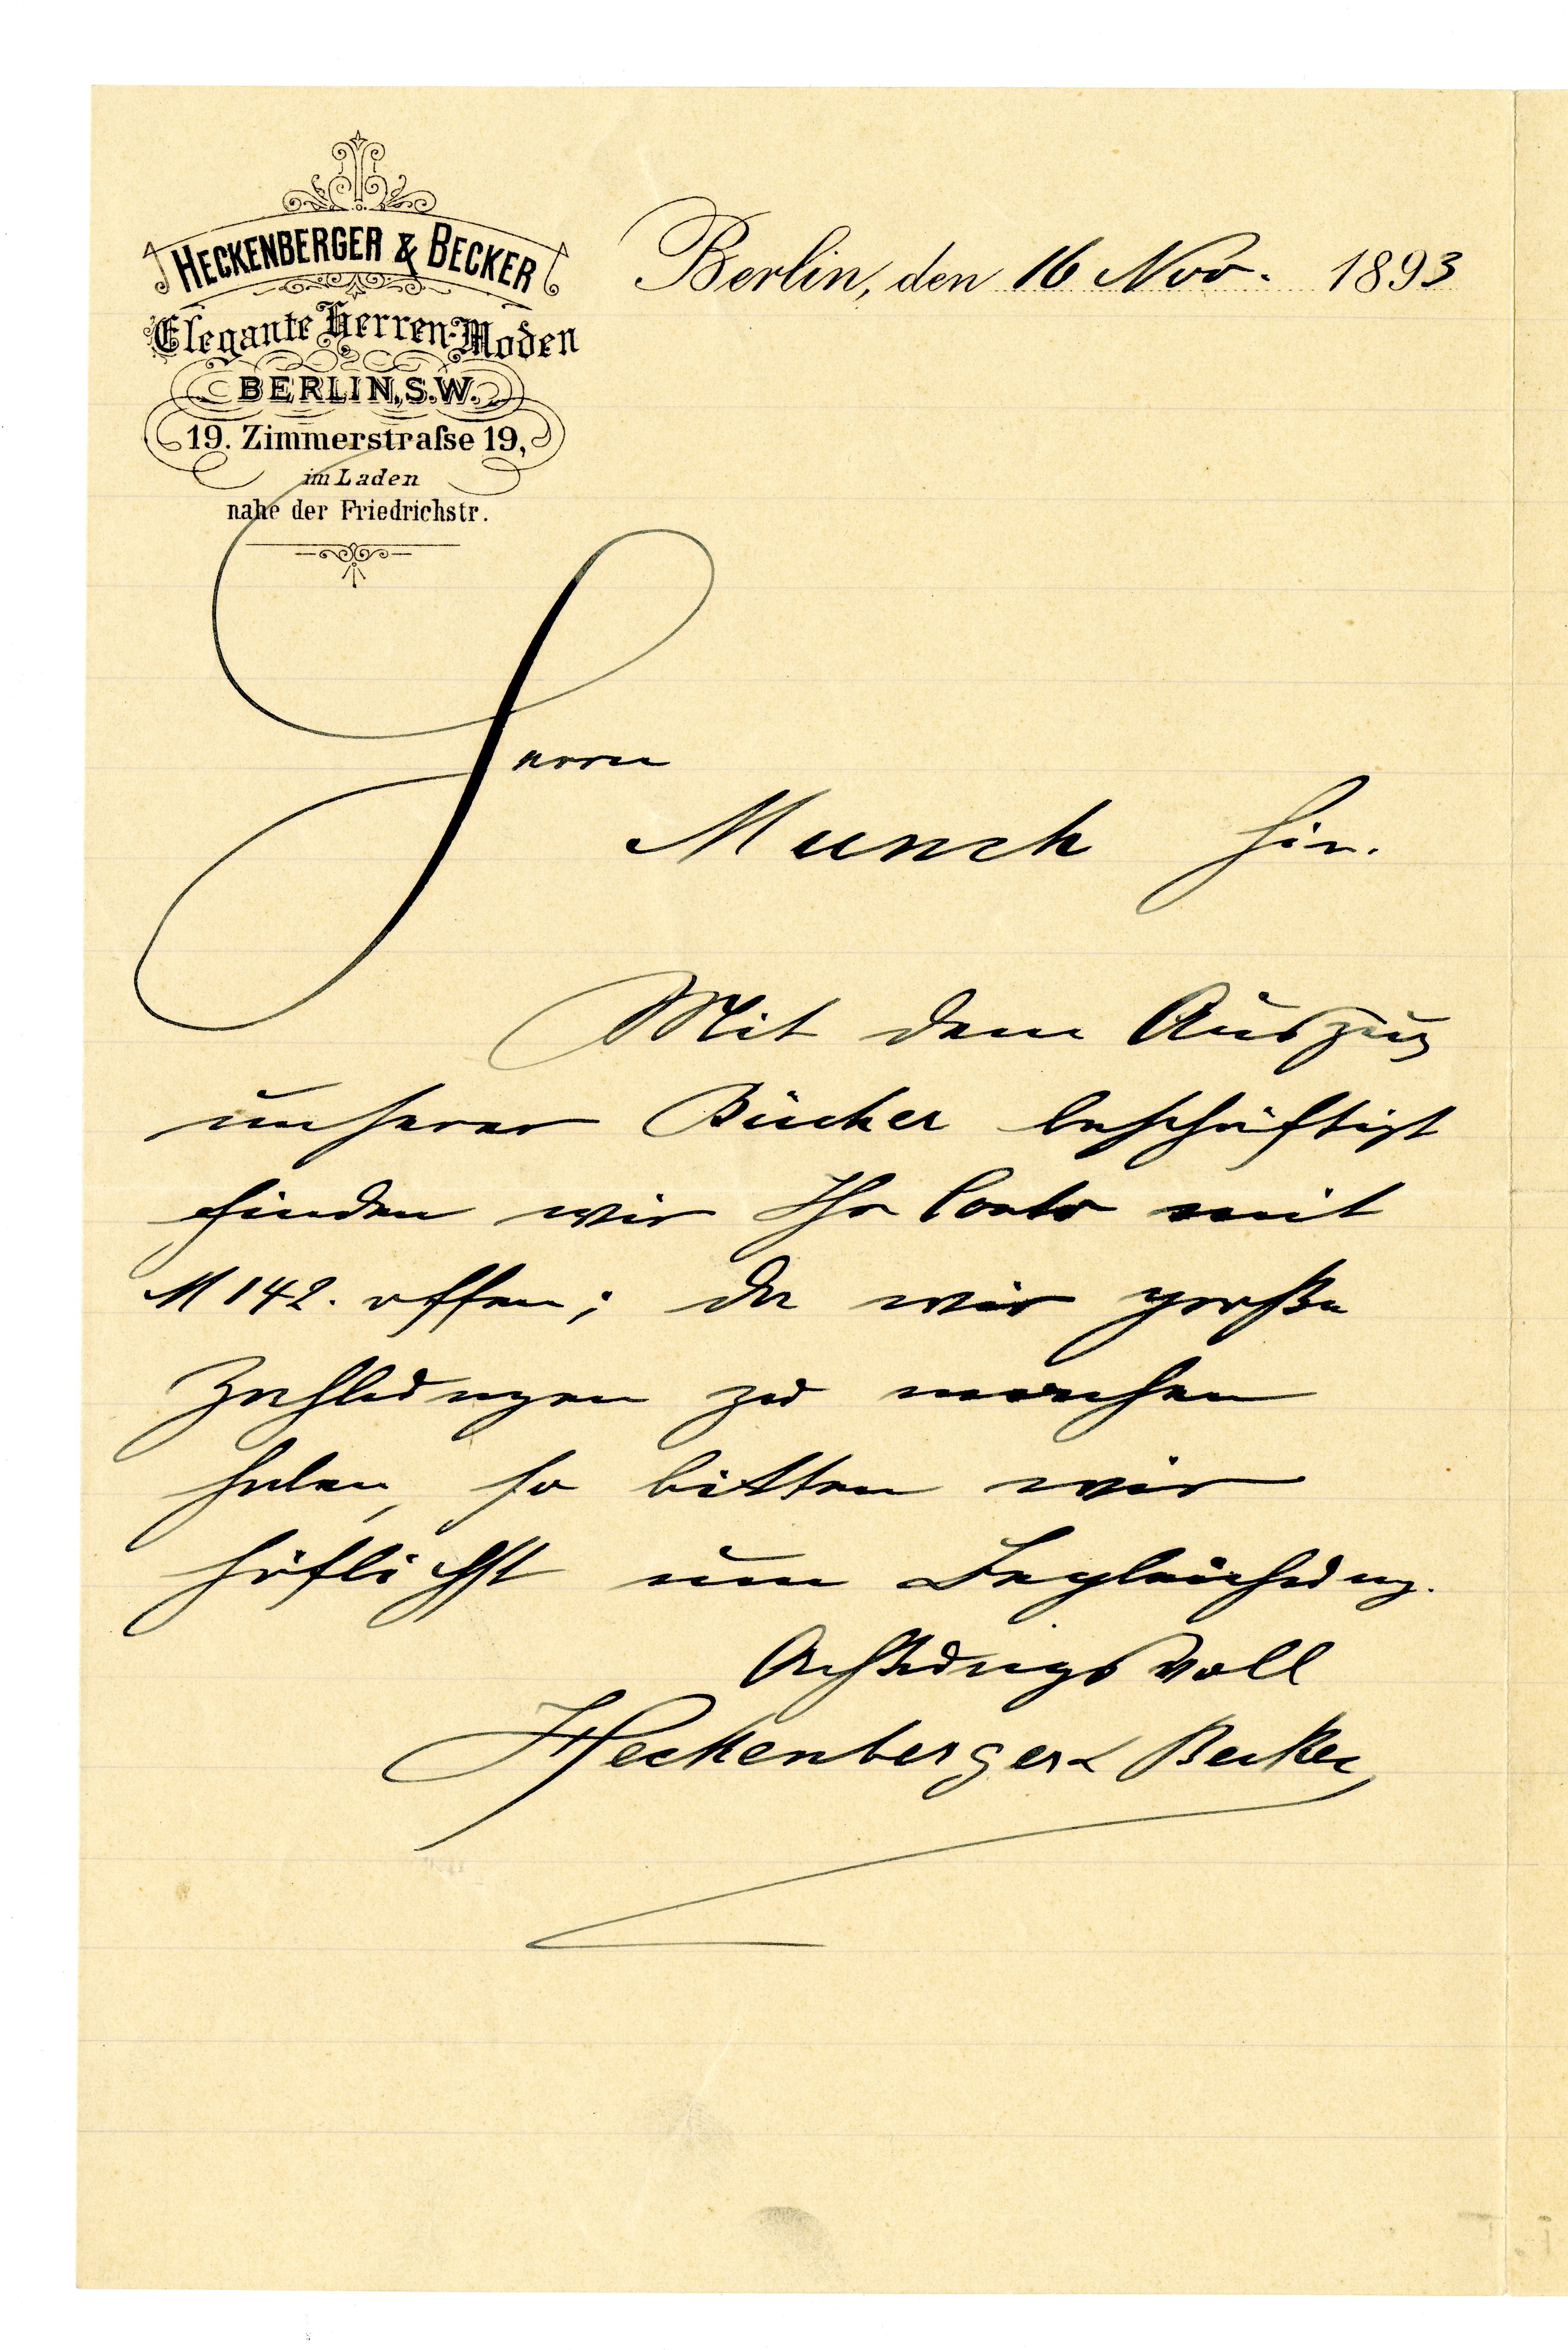 HECKENBERGER & BECKER
Elegante Herren-Moden
BERLIN, S.W.
19. Zimmerstraſse 19,
im Laden
nahe der Friedrichstr.
Berlin, den 16 Nov. 1893
Herrn
Munch hier.
Mit dem Auszug
unserer Bücher beschäftigt
finden wir Ihr Conto mit
M 142. offen; da wir große
Zahlungen zu machen
haben, so bitten wir
höflichst um Begleichung.
Achtungsvoll
Heckenberger & Becker